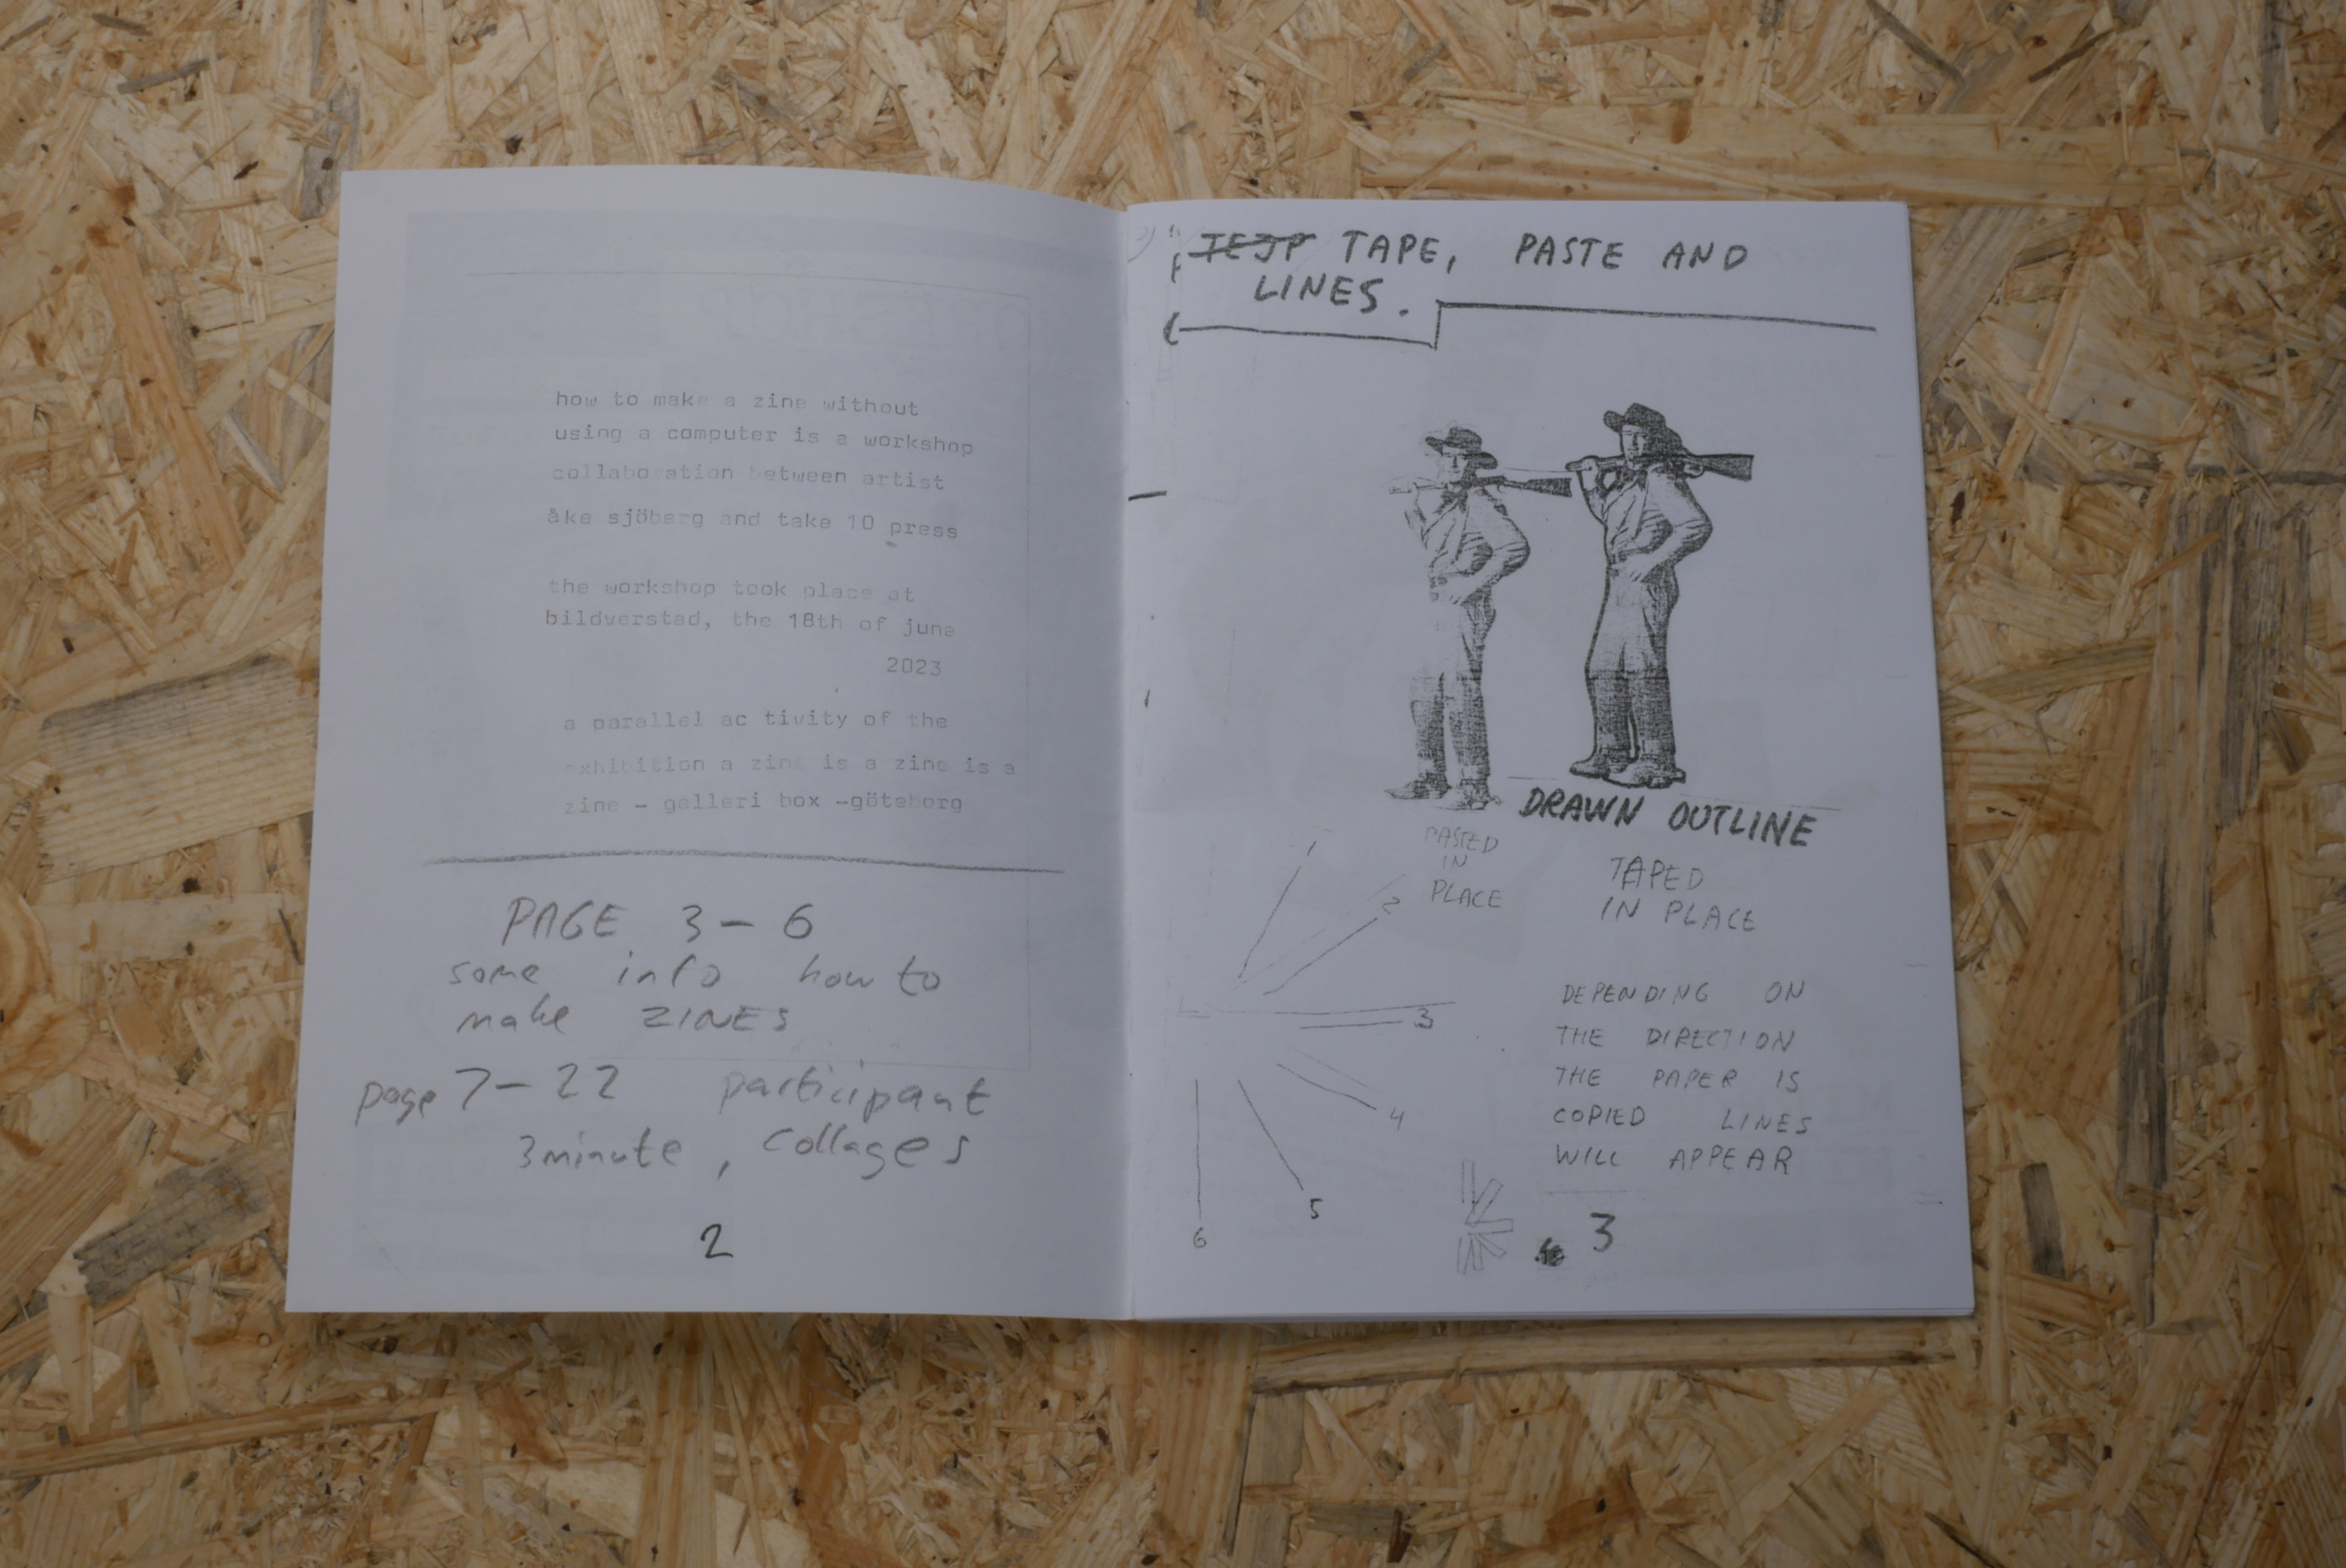 how to make a zine without
using a computer is a workshop
collaboration between artist
åke sjöberg and take 10 press
the workshop took place at
bildverstad, the 18th of june
2023
a parallel ac tivity of the
exhibition a zine is a zine is a
zine - galleri box -göteborg
PAGE 3-6
some info how to
make ZINES
page 7-22 participant
3 minute, collages
2
TAPE, PASTE AND
LINES.
DRAWN OUTLINE
PASTED
IN
PLACE
TAPED
IN PLACE
DEPENDING ON
THE DIRECTION
THE PAPER IS
COPIED LINES
WILL APPEAR
1
2
3
4
5
6
3